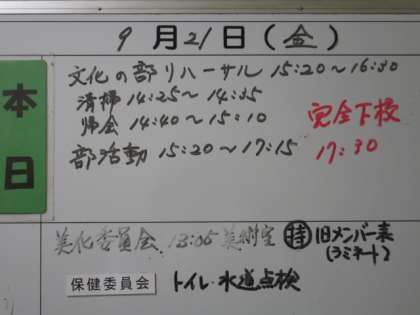 9月21日(金)
本日
文化の部リハーサル 15:20〜16:30
清掃 14:25〜14:35
帰会 14:40〜15:10
完全下校
部活動 15:20〜17:15
17:30
美化委員会 13:05 美術室 特 旧メンバー表
(ラミネート)
保健委員会 トイレ・水道点検